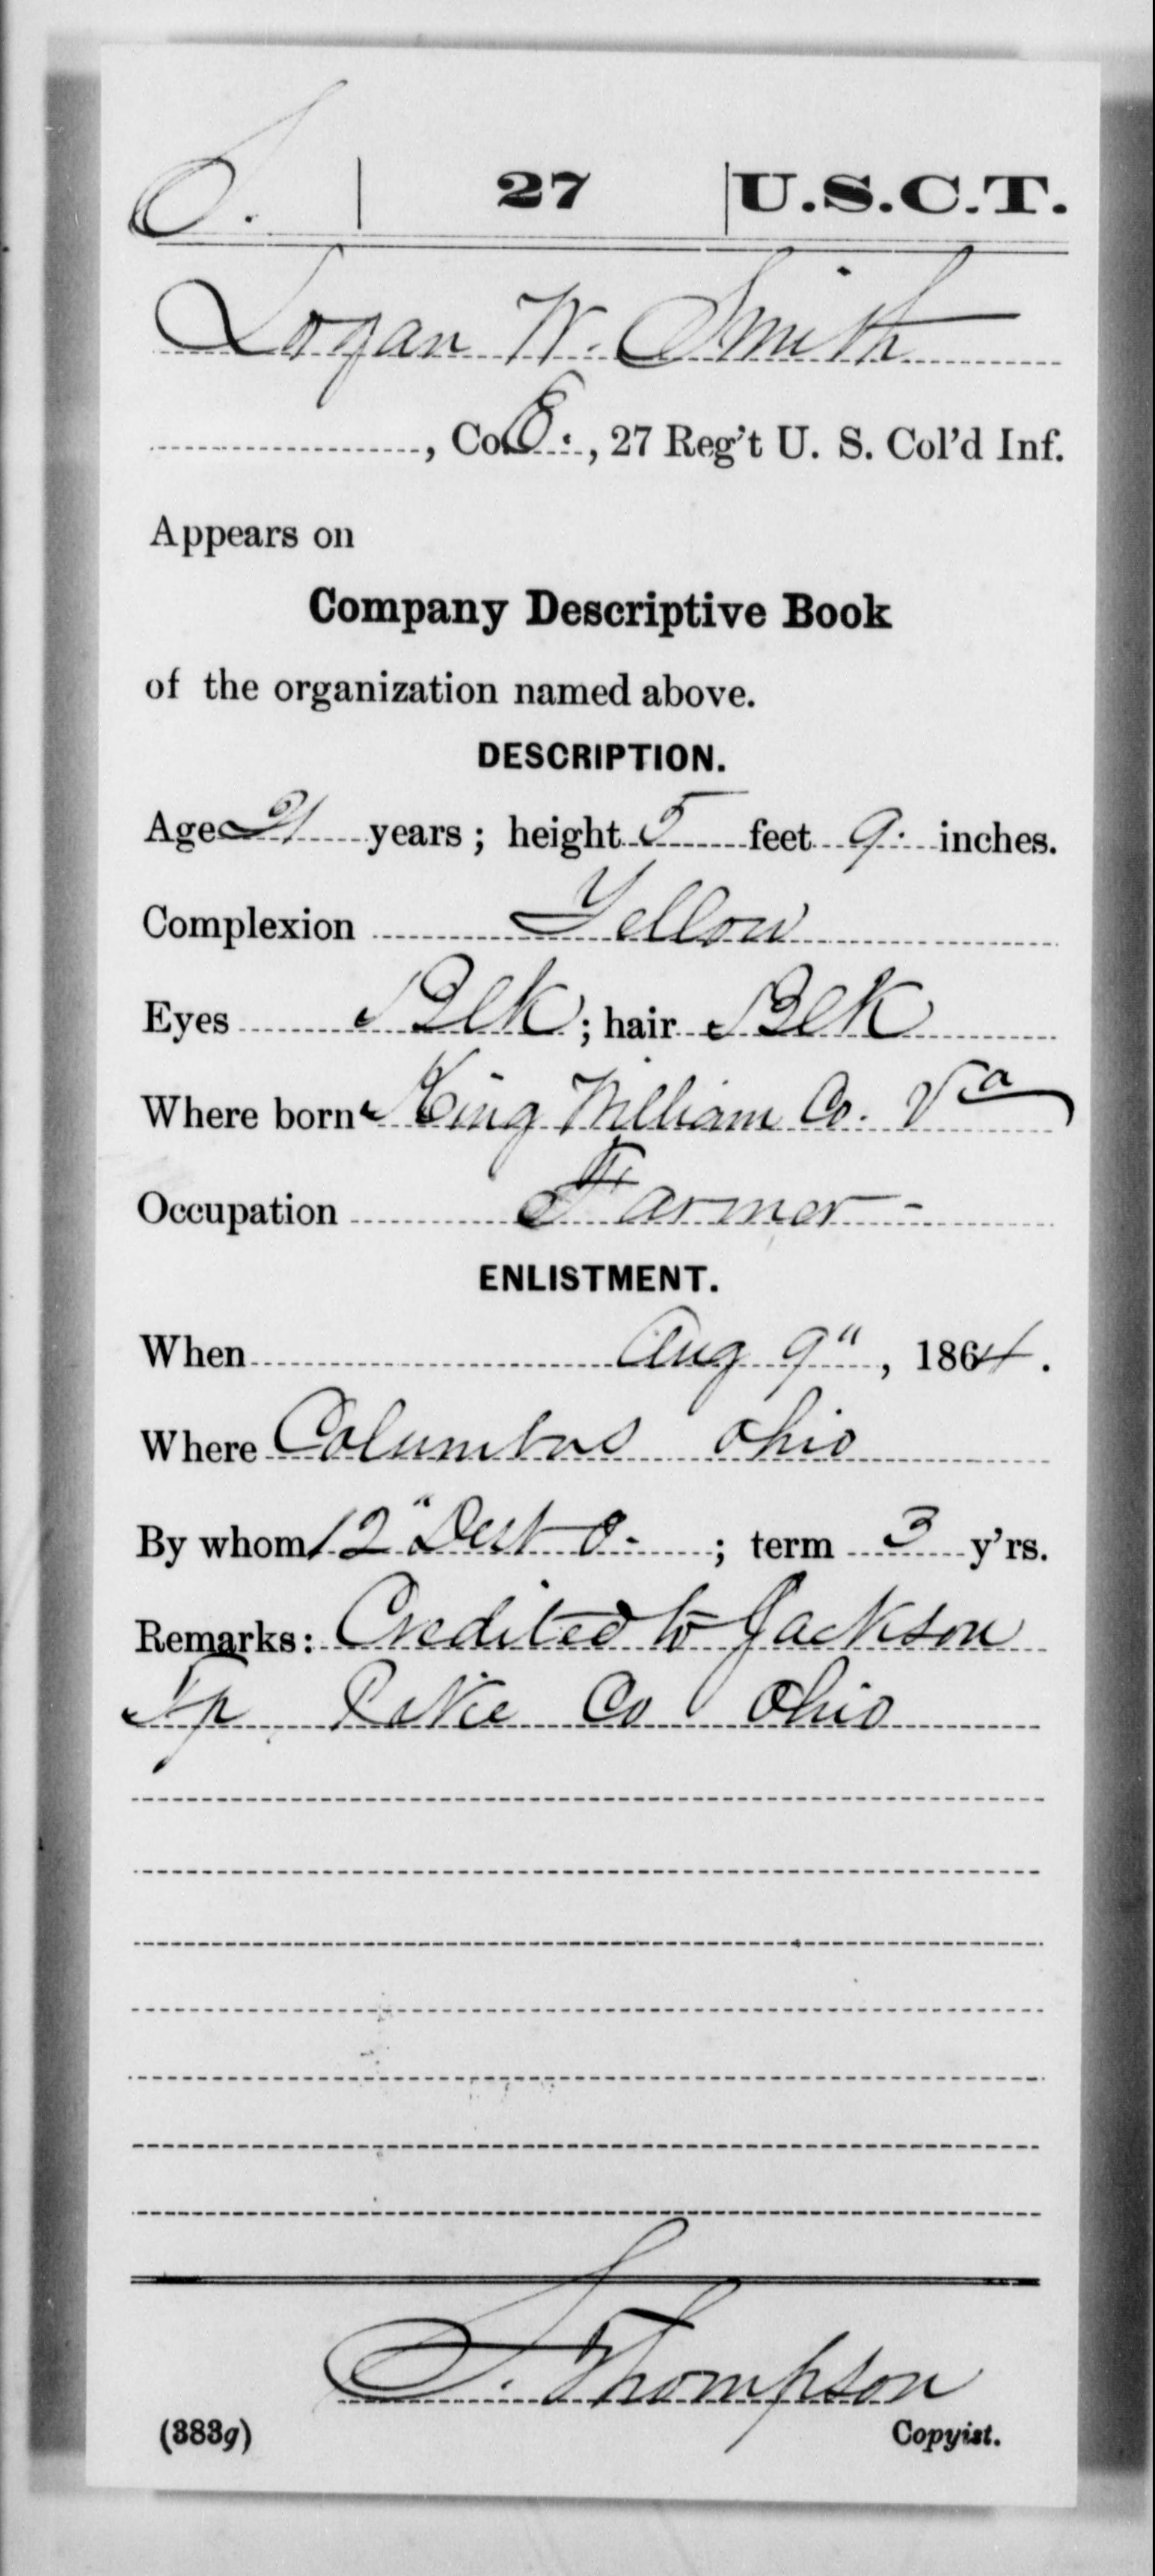 S. | 27 | U.S.C.T.
Logan W. Smith
, Co. E., 27 Reg't U. S. Col'd Inf.
Appears on
Company Descriptive Book
of the organization named above.
DESCRIPTION.
Age 21 years; height 5 feet 9 inches.
Complexion Yellow
Eyes Blk; hair Blk
Where born King William Co. Va
Occupation Farmer -
ENLISTMENT.
When Aug 9", 1864.
Where Columbus Ohio
By whom 12" Dist O. ; term 3 y'rs.
Remarks: Credited to Jackson
Tp Co Ohio
S. Thompson
(383g) Copyist.